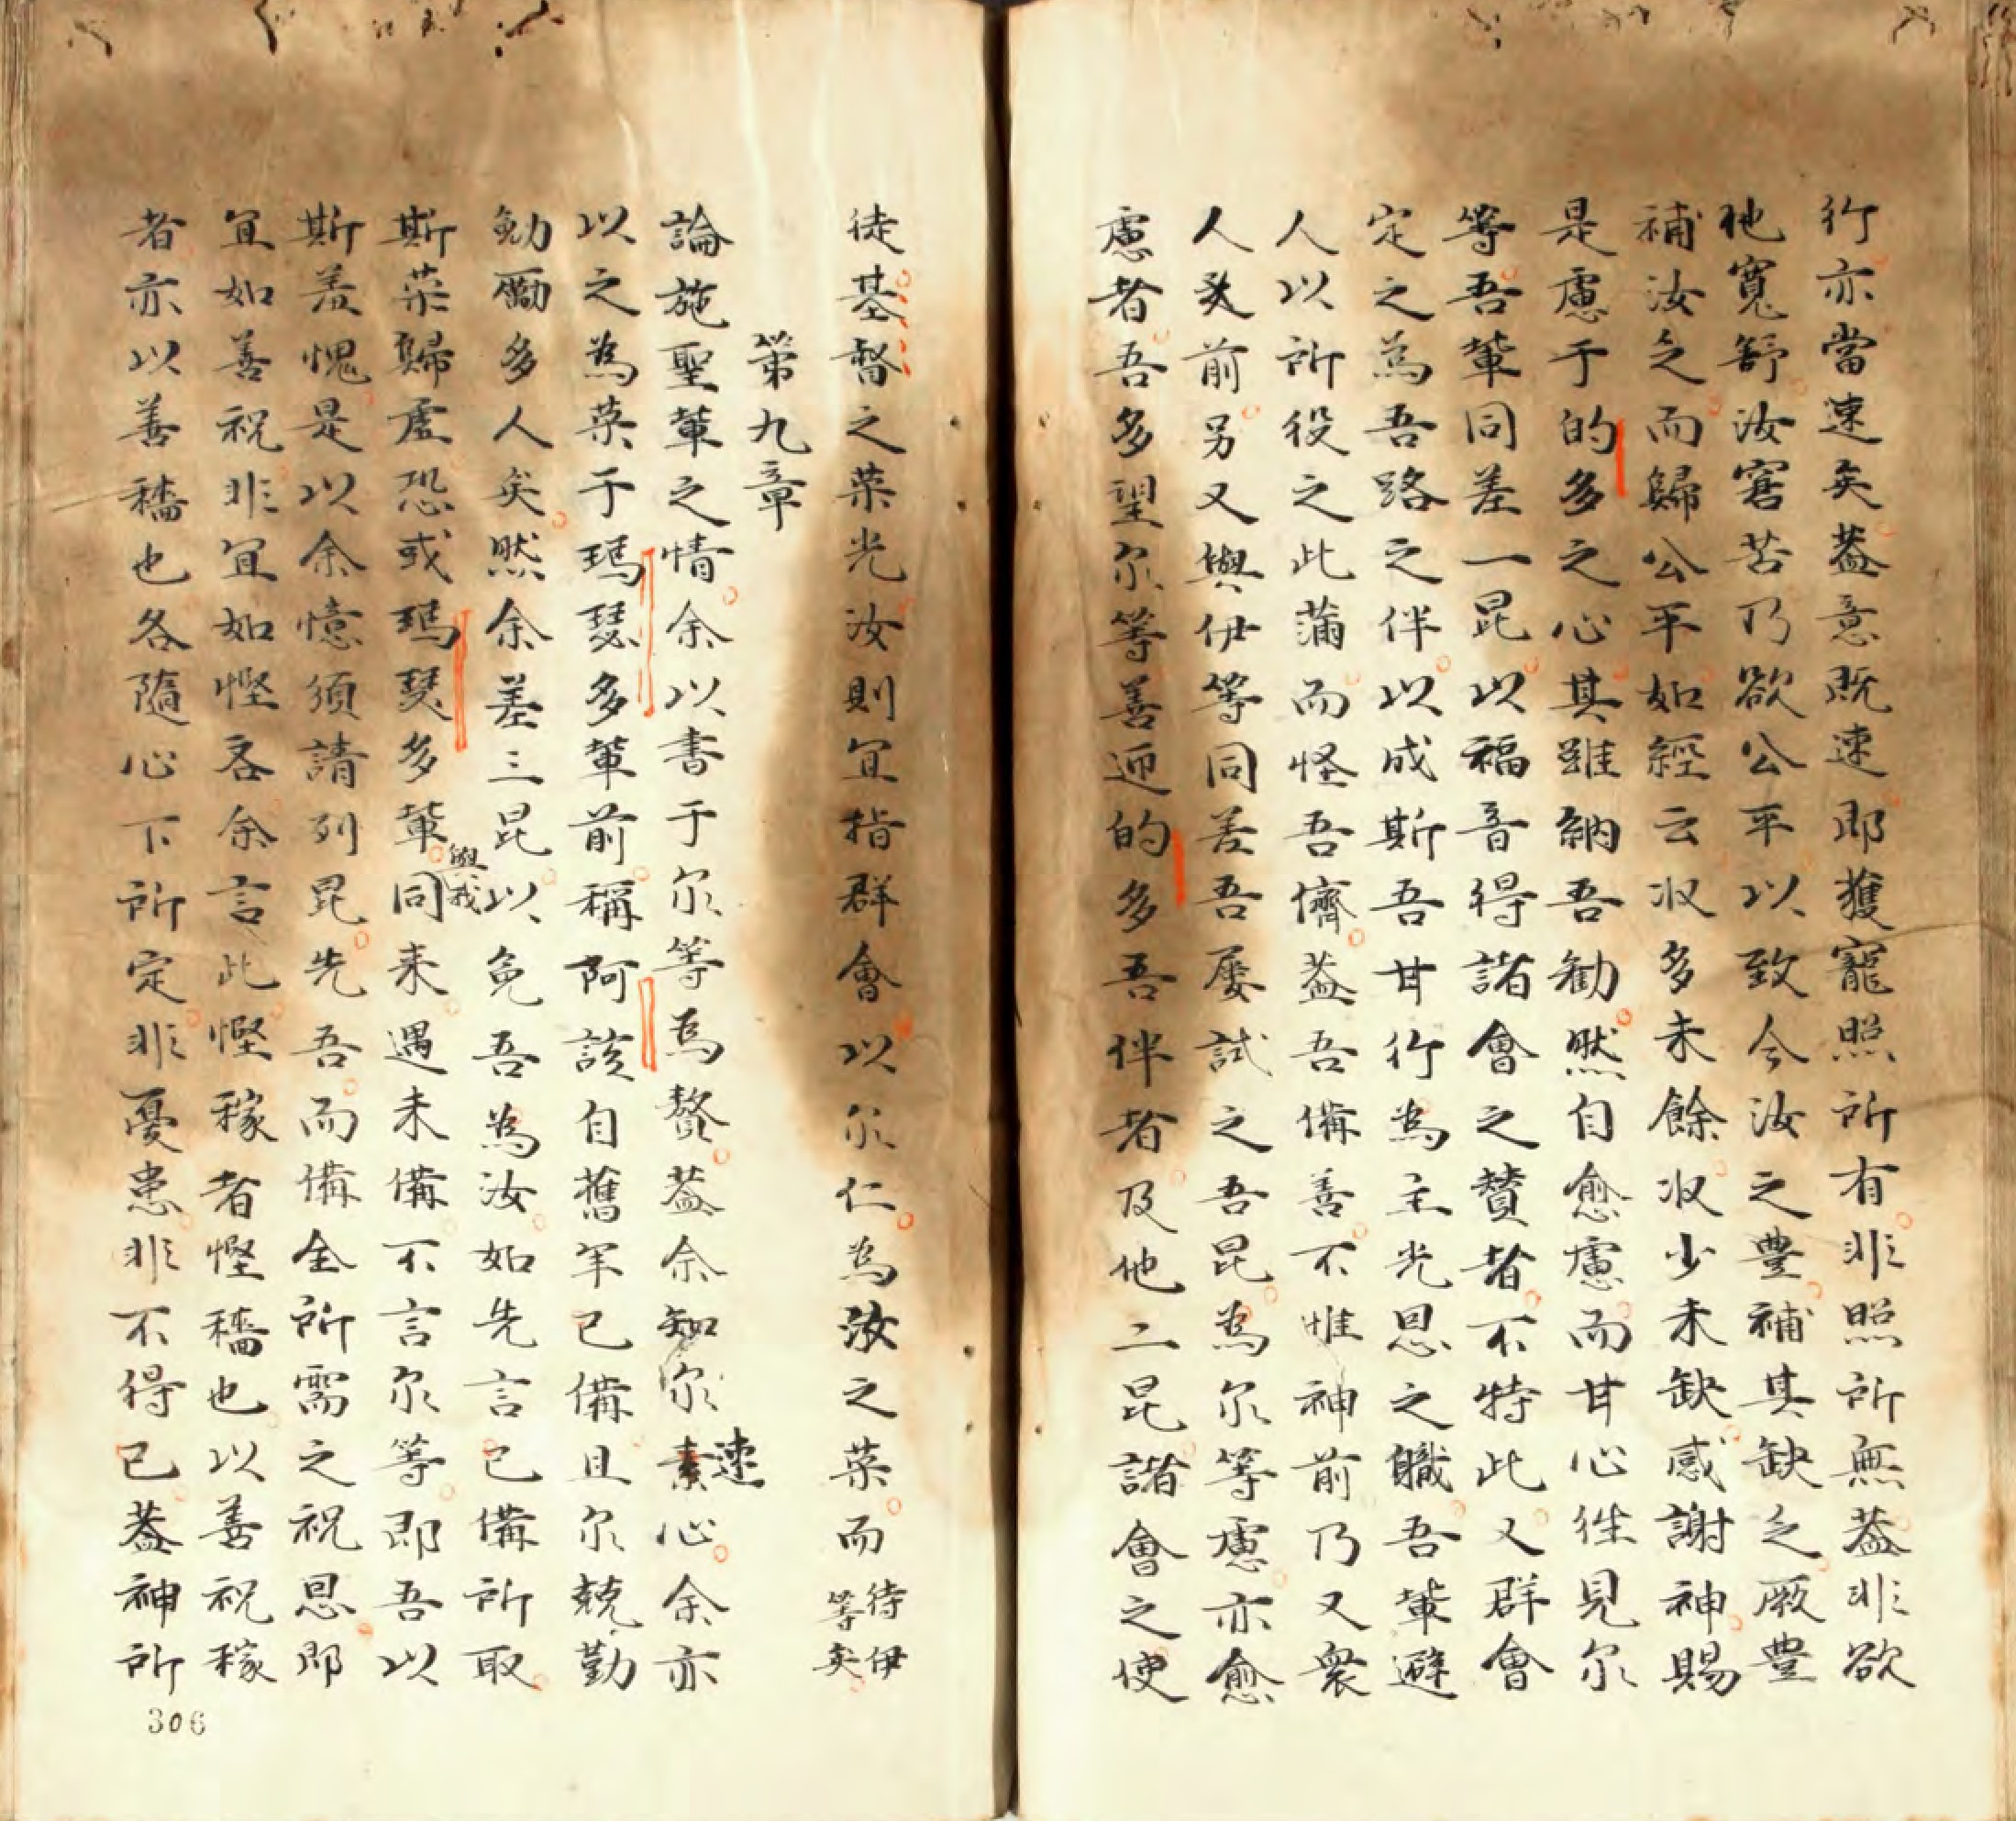 行亦當速矣蓋意既速即獲寵照所有非照所無蓋非欲
他寬舒汝窘苦乃欲公平以致今汝之豊補其缺之厥豊
補汝乏而歸公平如經云收多未餘收少未缺感謝神賜
是慮于的多之心其雖納吾勸然自愈慮而甘心徃見尔
等吾輩同差一昆以福音得諸會之賛者不特此又群會
定之為吾路之伴以成斯吾甘行為主光恩之職吾輩避
人以所役之此蒲而怪吾儕蓋吾備善不惟神前乃又衆
人矣前另又與伊等同差吾屡試之吾昆為尔等慮亦愈
慮者吾多望尔等善迎的多吾伴者及他二昆諸會之使
徒基督之荣光汝則宜指群會以尔仁為汝之荣而待伊等矣
第九章
論施聖輩之情余以書于尔等為贅蓋余知尔素速心余亦
以之為荣于瑪瑟多輩前稱阿該自舊年已備且尔兢勤
勉勵多人矣然余差三昆以免吾為汝如先言已備所取
斯荣歸虚恐或瑪瑟多輩與我同来遇未備不言尔等即吾以
斯羞愧是以余憶須請列昆先吾而備全所需之祝恩即
宜如善祝非宜如慳吝余言此慳稼者慳穡也以善祝稼
者亦以善穡也各隨心下所定非憂患非不得已蓋神所
306